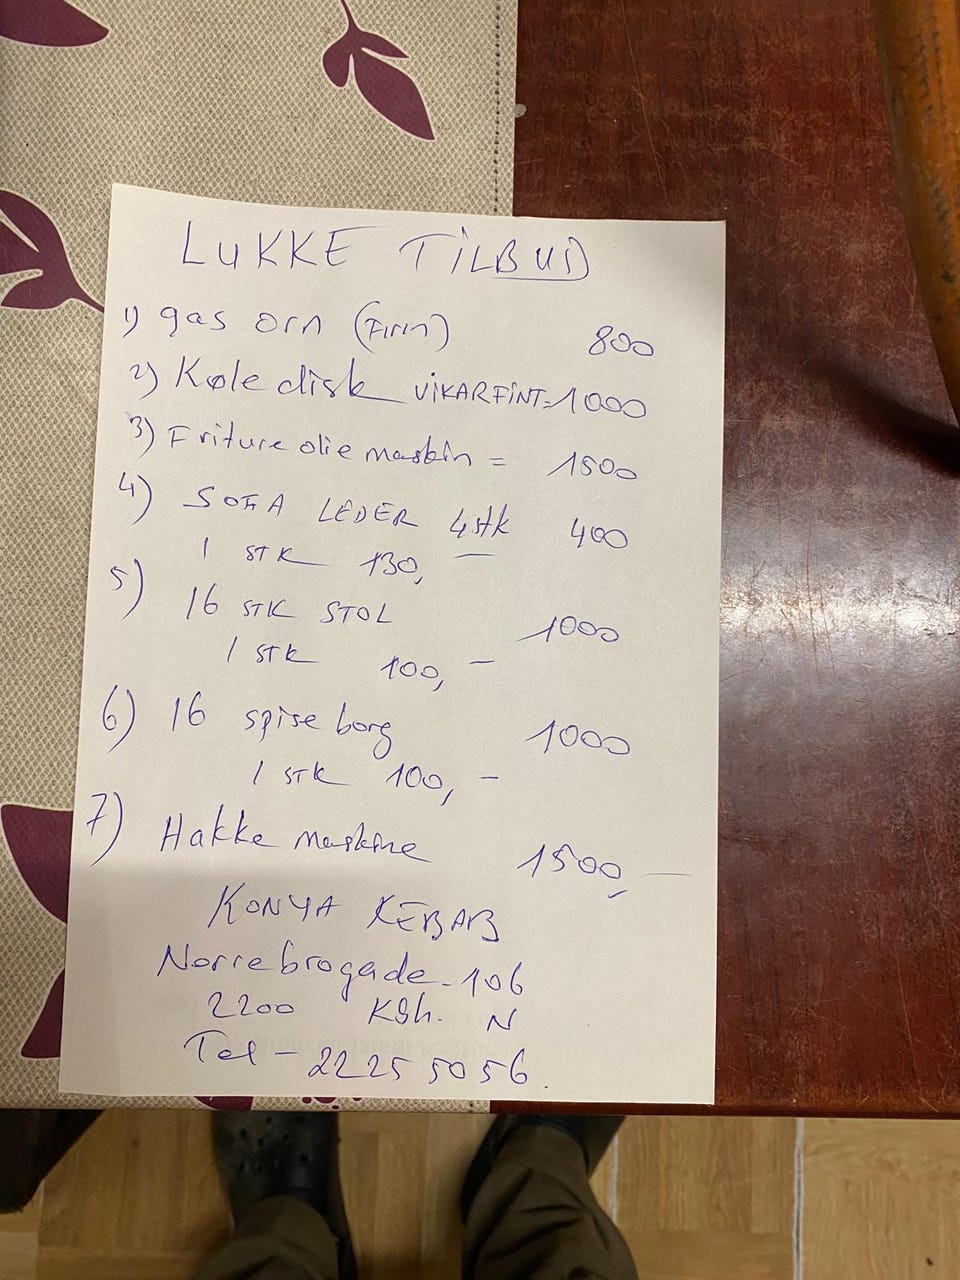 LUKKE TILBUD
1) gas orn (Firin) 800
2) Køle disk VIKARFINT=1000
3) Friture olie maskin = 1500
4) SOFA LEDER 4 stk 400
1 STK 130,-
5) 16 STK STOL 1000
1 STK 100,-
6) 16 spise borg 1000
1 STK 100,-
7) Hakke maskine 1500,-
KONYA KEBAB
Norrebrogade-106
2200 Kbh. N
Tel - 22 25 50 56.